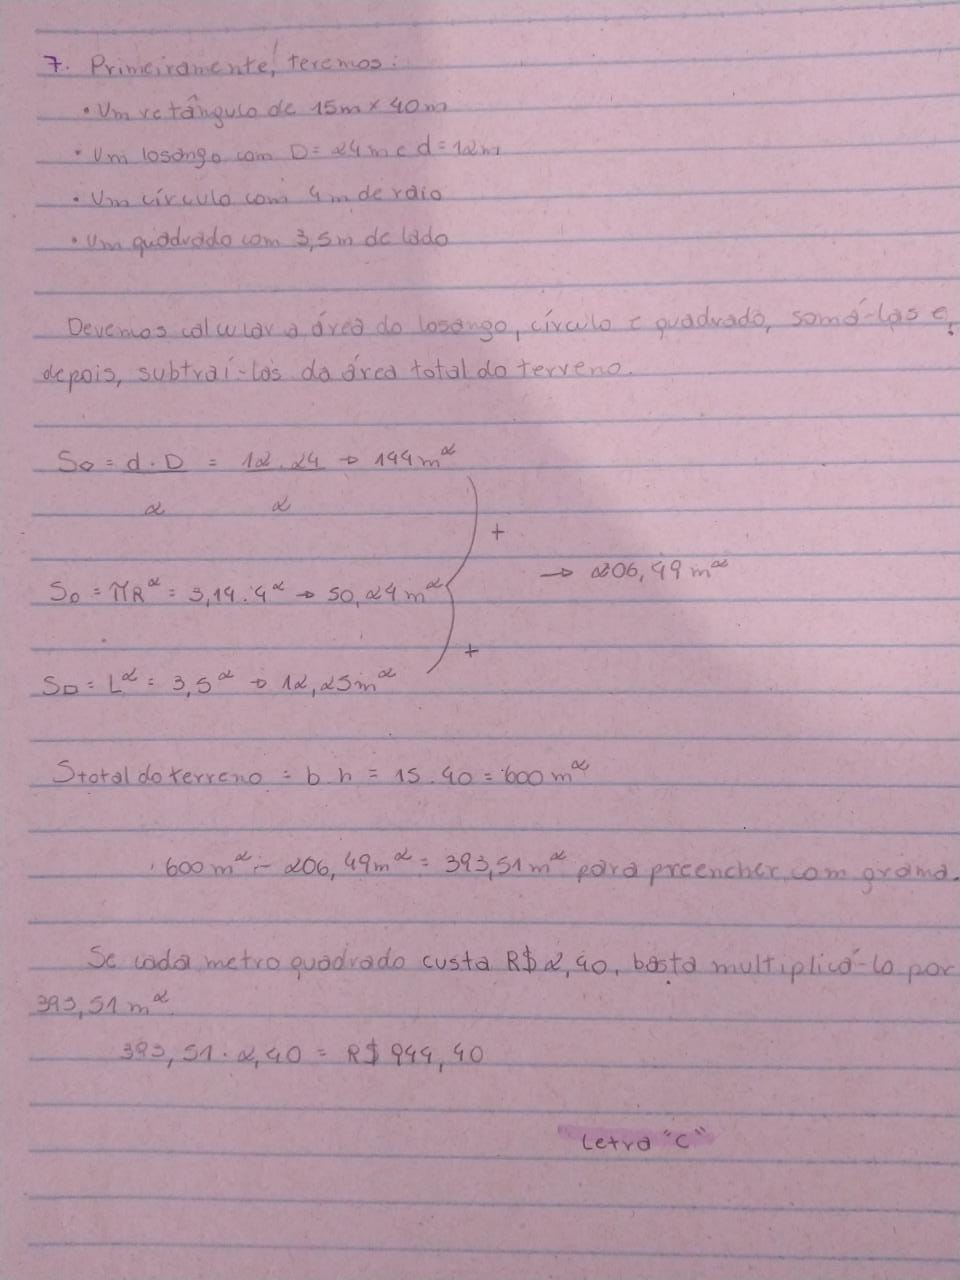 7. Primeiramente, teremos:
• Um retângulo de 15m x 40m
• Um losango com D = 24m e d = 12m
• Um círculo com 4m de raio
• Um quadrado com 3,5m de lado
Devemos calcular a área do losango, círculo e quadrado, somá-las e,
depois, subtraí-las da área total do terreno.
S◇ = d . D = 12 . 24 → 144m²
2 2
+
S○ = πR² = 3,14 . 4² → 50,24m²
→ 206,49m²
+
S□ = L² = 3,5² → 12,25m²
Stotal do terreno = b . h = 15 . 40 = 600m²
600m² - 206,49m² = 393,51m² para preencher com grama.
Se cada metro quadrado custa R$ 2,40, basta multiplicá-lo por
393,51m².
393,51 . 2,40 = R$ 944,40
Letra "C"